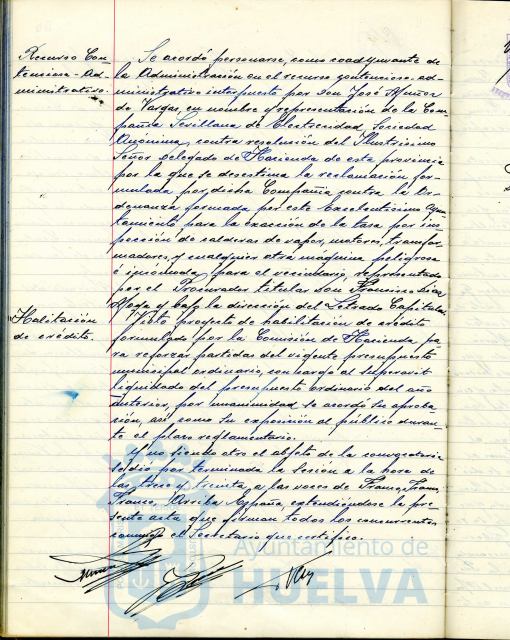 Recurso Con-
tencioso-Ad-
ministrativo.
Se acordó personarse, como coadyuvante de
la Administración en el recurso contencioso-ad-
ministrativo interpuesto por Don José Muñoz
de Vargas, en nombre y representación de la Com-
pañia Sevillana de Electricidad Sociedad
Anónima, contra resolución del Ilustrisimo
Señor Delegado de Hacienda de esta provincia
por la que se desestima la reclamación for-
mulada por dicha Compañia contra la Or-
denanza formada por este Excelentísimo Ayun-
tamiento para la exacción de la tasa por ins-
pección de calderas de vapor, motores, transfor-
madores, y cualquier otra máquina peligrosa
é incómoda, para el vecindario, representado
por el Procurador titular Don Francisco Diaz
y bajo la dirección del Letrado Capitular.
Habilitación
de crédito.
Visto proyecto de habilitación de crédito
formulado por la Comisión de Hacienda, pa-
ra reforzar partidas del vigente presupuesto
municipal ordinario, con cargo al superavit
liquidado del presupuesto ordinario del año
anterior, por unanimidad se acordó su aproba-
ción, así como su exposición al público duran-
te el plazo reglamentario.
Y no siendo otro el objeto de la convocatoria
se dió por terminada la sesión a la hora de
las trece y treinta, a las voces de Franco, Franco,
Franco, Arriba España, extendiéndose la pre-
sente acta que firman todos los concurrentes
conmigo el Secretario que certifico.
Ayuntamiento de
HUELVA